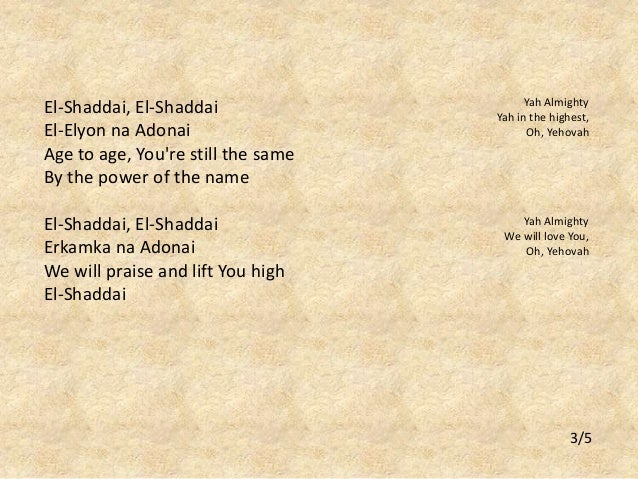 El-Shaddai, El-Shaddai
El-Elyon na Adonai
Age to age, You're still the same
By the power of the name
Yah Almighty
Yah in the highest,
Oh, Yehovah
El-Shaddai, El-Shaddai
Erkamka na Adonai
We will praise and lift You high
El-Shaddai
Yah Almighty
We will love You,
Oh, Yehovah
3/5